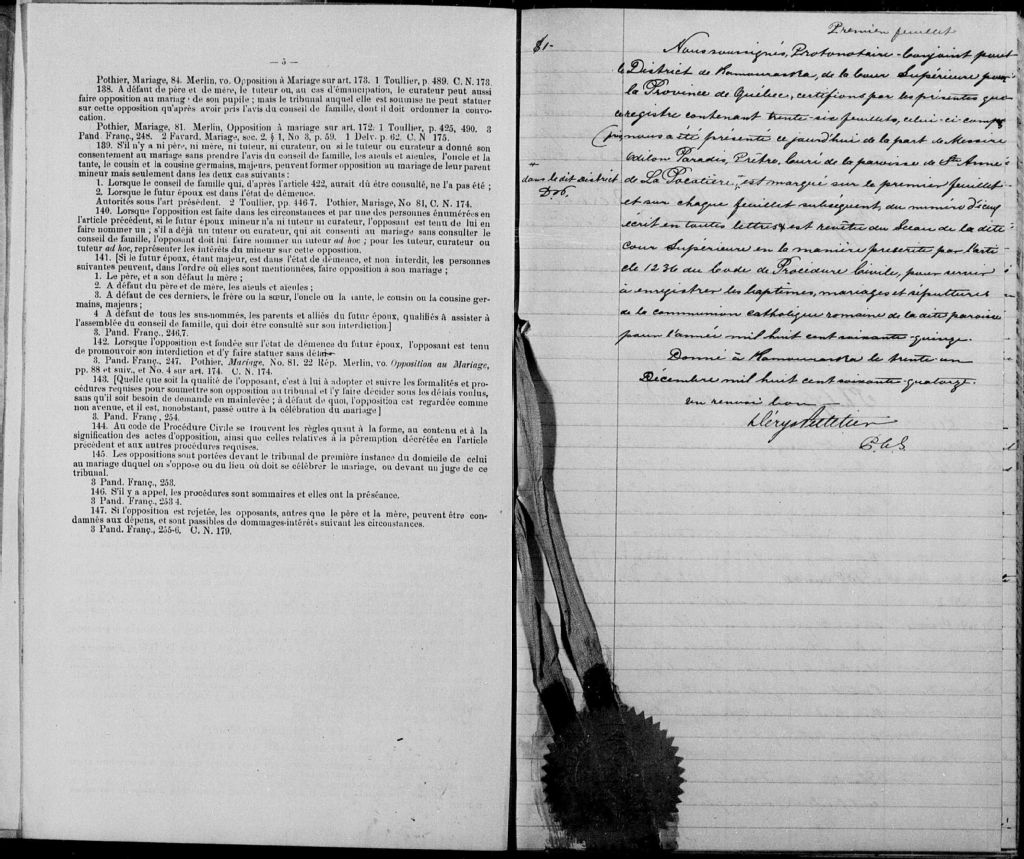 — 5 —
Pothier, Mariage, 84. Merlin, vo. Opposition à Mariage sur art. 173. 1 Toullier, p. 489. C. N. 173.
138. A défaut de père et de mère, le tuteur ou, au cas d'émancipation, le curateur peut aussi
faire opposition au mariag de son pupile ; mais le tribunal auquel elle est soumise ne peut statuer
sur cette opposition qu'après avoir pris l'avis du conseil de famille, dont il doit ordonner la convo-
cation.
Pothier, Mariage, 81. Merlin, Opposition à mariage sur art. 172; 1 Toullier, p. 425, 490. 3
Pand. Franç., 248. 2 Favard, Mariage, sec. 2, § 1, No 3, p. 59. 1 Delv. p. 62. C. N 175.
139. S'il n'y a ni père, ni mère, ni tuteur, ni curateur, ou si le tuteur ou curateur a donné son
consentement au mariage sans prendre l'avis du conseil de famille, les aieuls et aieules, l'oncle et la
tante, le cousin et la cousine germains, majeurs, peuvent former opposition au mariage de leur parent
mineur mais seulement dans les deux cas suivants :
1. Lorsque le conseil de famille qui, d'après l'article 422, aurait dû être consulté, ne l'a pas été ;
2. Lorsque le futur époux est dans l'état de démence.
Autorités sous l'art présédent. 2 Toullier, pp. 446-7. Pothier, Mariage, No 81, C. N. 174.
140. Lorsque l'opposition est faite dans les circonstances et par une des personnes énumérées en
l'article précédent, si le futur époux mineur n'a ni tuteur ni curateur, l'opposant est tenu de lui en
faire nommer un ; s'il a déjà un tuteur ou curateur, qui ait consenti au mariage sans consulter le
conseil de famille, l'opposant doit lui faire nommer un tuteur ad hoc ; pour les tuteur, curateur ou
tuteur ad hoc, représenter les intérêts du mineur sur cette opposition.
141. [Si le futur époux, étant majeur, est dans l'état de démence, et non interdit, les personnes
suivantes peuvent, dans l'ordre où elles sont mentionnées, faire opposition à son mariage ;
1. Le père, et a son défaut la mère ;
2. A défaut du père et de mère, les aieuls et aieules ;
3. A défaut de ces derniers, le frère ou la sœur, l'oncle ou la tante, le cousin ou la cousine ger-
mains, majeurs ;
4 A défaut de tous les sus-nommés, les parents et alliés du futur époux, qualifiés à assister à
l'assemblée du conseil de famille, qui doit être consulté sur son interdiction.]
3. Pand. Franç., 246,7.
142. Lorsque l'opposition est fondée sur l'état de démence du futur époux, l'opposant est tenu
de promouvoir son interdiction et d'y faire statuer sans délai.
3. Pand. Franç., 247. Pothier, Mariage, No. 81. 22 Rép. Merlin, vo. Opposition au Mariage,
pp. 88 et suiv., et No. 4 sur art. 174. C. N. 174.
143. [Quelque que soit la qualité de l'opposant, c'est à lui à adopter et suivre les formalités et pro-
cédures requises pour soumettre son opposition au tribunal et l'y faire décider sous les délais voulus,
sans qu'il soit besoin de demande en mainlevée ; à défaut de quoi, l'opposition est regardée comme
non avenue, et il est, nonobstant, passé outre à la célébration du mariage]
3. Pand. Franç , 254.
144. Au code de Procédure Civile se trouvent les règles quant à la forme, au contenu et à la
signification des actes d'opposition, ainsi que celles relatives à la péremption décrétée en l'article
précédent et aux autres procédures requises.
145. Les oppositions sont portées devant le tribunal de première instance du domicile de celui
au mariage duquel on s'oppose ou du lieu où doit se célébrer le mariage, ou devant un juge de ce
tribunal.
3 Pand. Franç., 253.
146. S'il y a appel, les procédures sont sommaires et elles ont la préséance.
3 Pand. Franç., 253 4.
147. Si l'opposition est rejetée, les opposants, autres que le père et la mère, peuvent être con-
damnés aux dépens, et sont passibles de dommages-intérêts suivant les circonstances.
3 Pand. Franç., 255-6. C. N. 179.
Premier feuillet
$1-
Nous soussignés, Protonotaire-Conjoint pour
le District de Kamouraska, de la Cour Supérieure pour
la Province de Québec, certifions par les présentes que
ce registre contenant trente-six feuillets, celui-ci compris
nous a été présenté ce jourd'hui de la part de Messire
Odilon Paradis, Prêtre, Curé de la paroisse de Ste Anne
+
dans le dit district
de La Pocatière, est marqué sur le premier feuillet
et sur chaque feuillet subséquent, du numéro d'iceux
écrit en toutes lettres & est revêtu du Sceau de la dite
Cour Supérieure en la manière prescrite par l'arti
cle 1236 du Code de Procédure Civile, pour servir
à enregistrer les baptêmes, mariages et sépultures
de la communion catholique romaine de la dite paroisse
pour l'année mil huit cent soixante quinze.
Donné à Kamouraska le trente un
Décembre mil huit cent soixante-quatorze.
un renvoi bon
P. C. S.